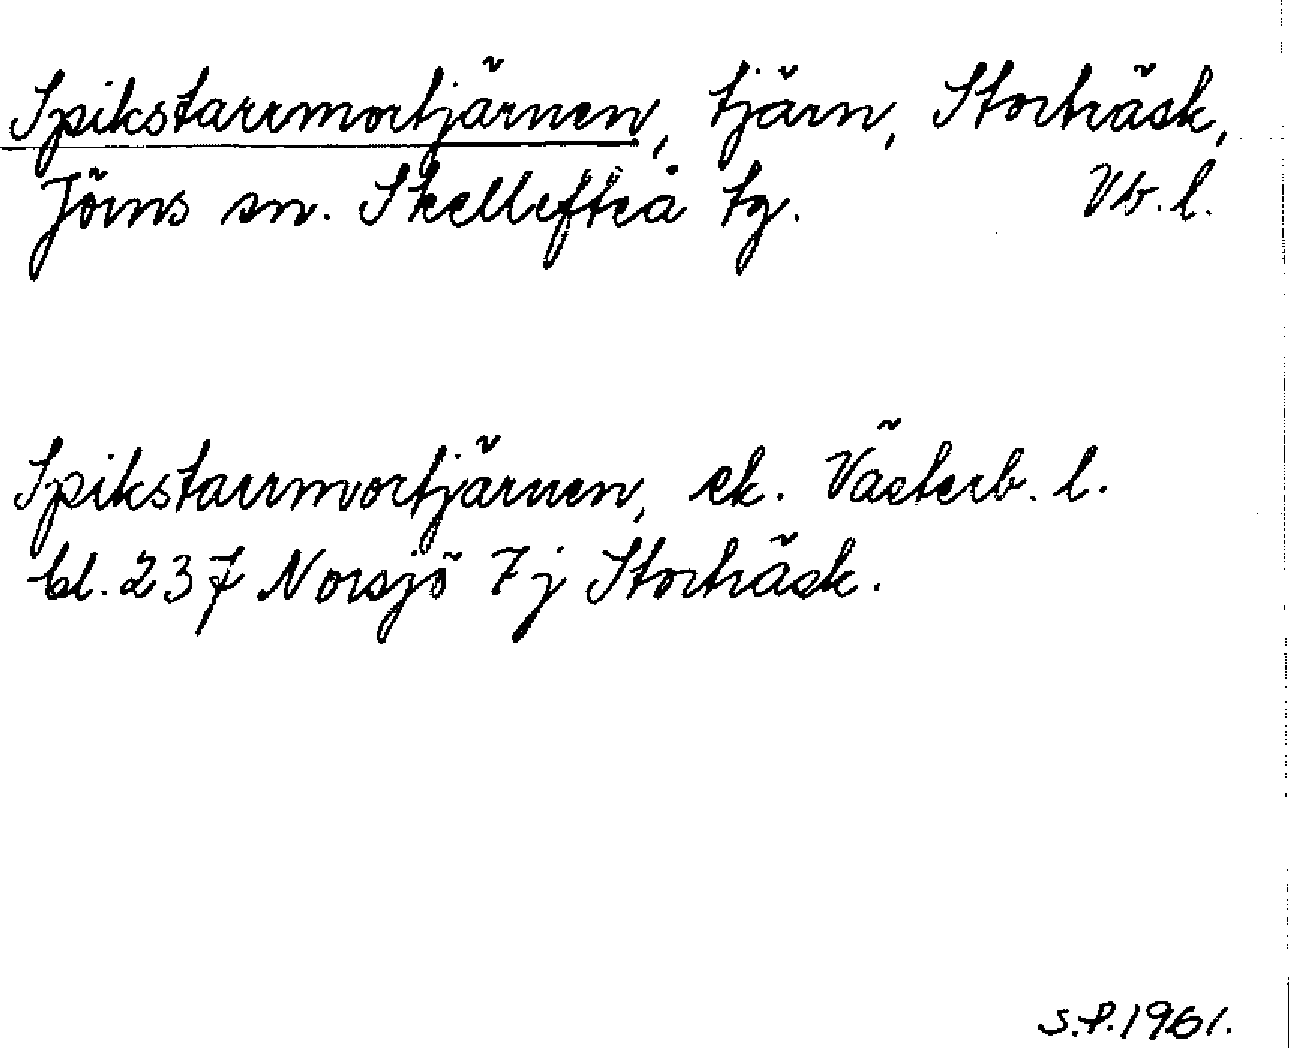 Spikstarrmortjärnen, tjärn, Storträsk,
Jörns sn. Skellefteå tg. Vb. l.
Spikstarrmortjärnen, ek. Västerb. l.
bl. 237 Norsjö 7 j Storträsk.
S.P. 1961.